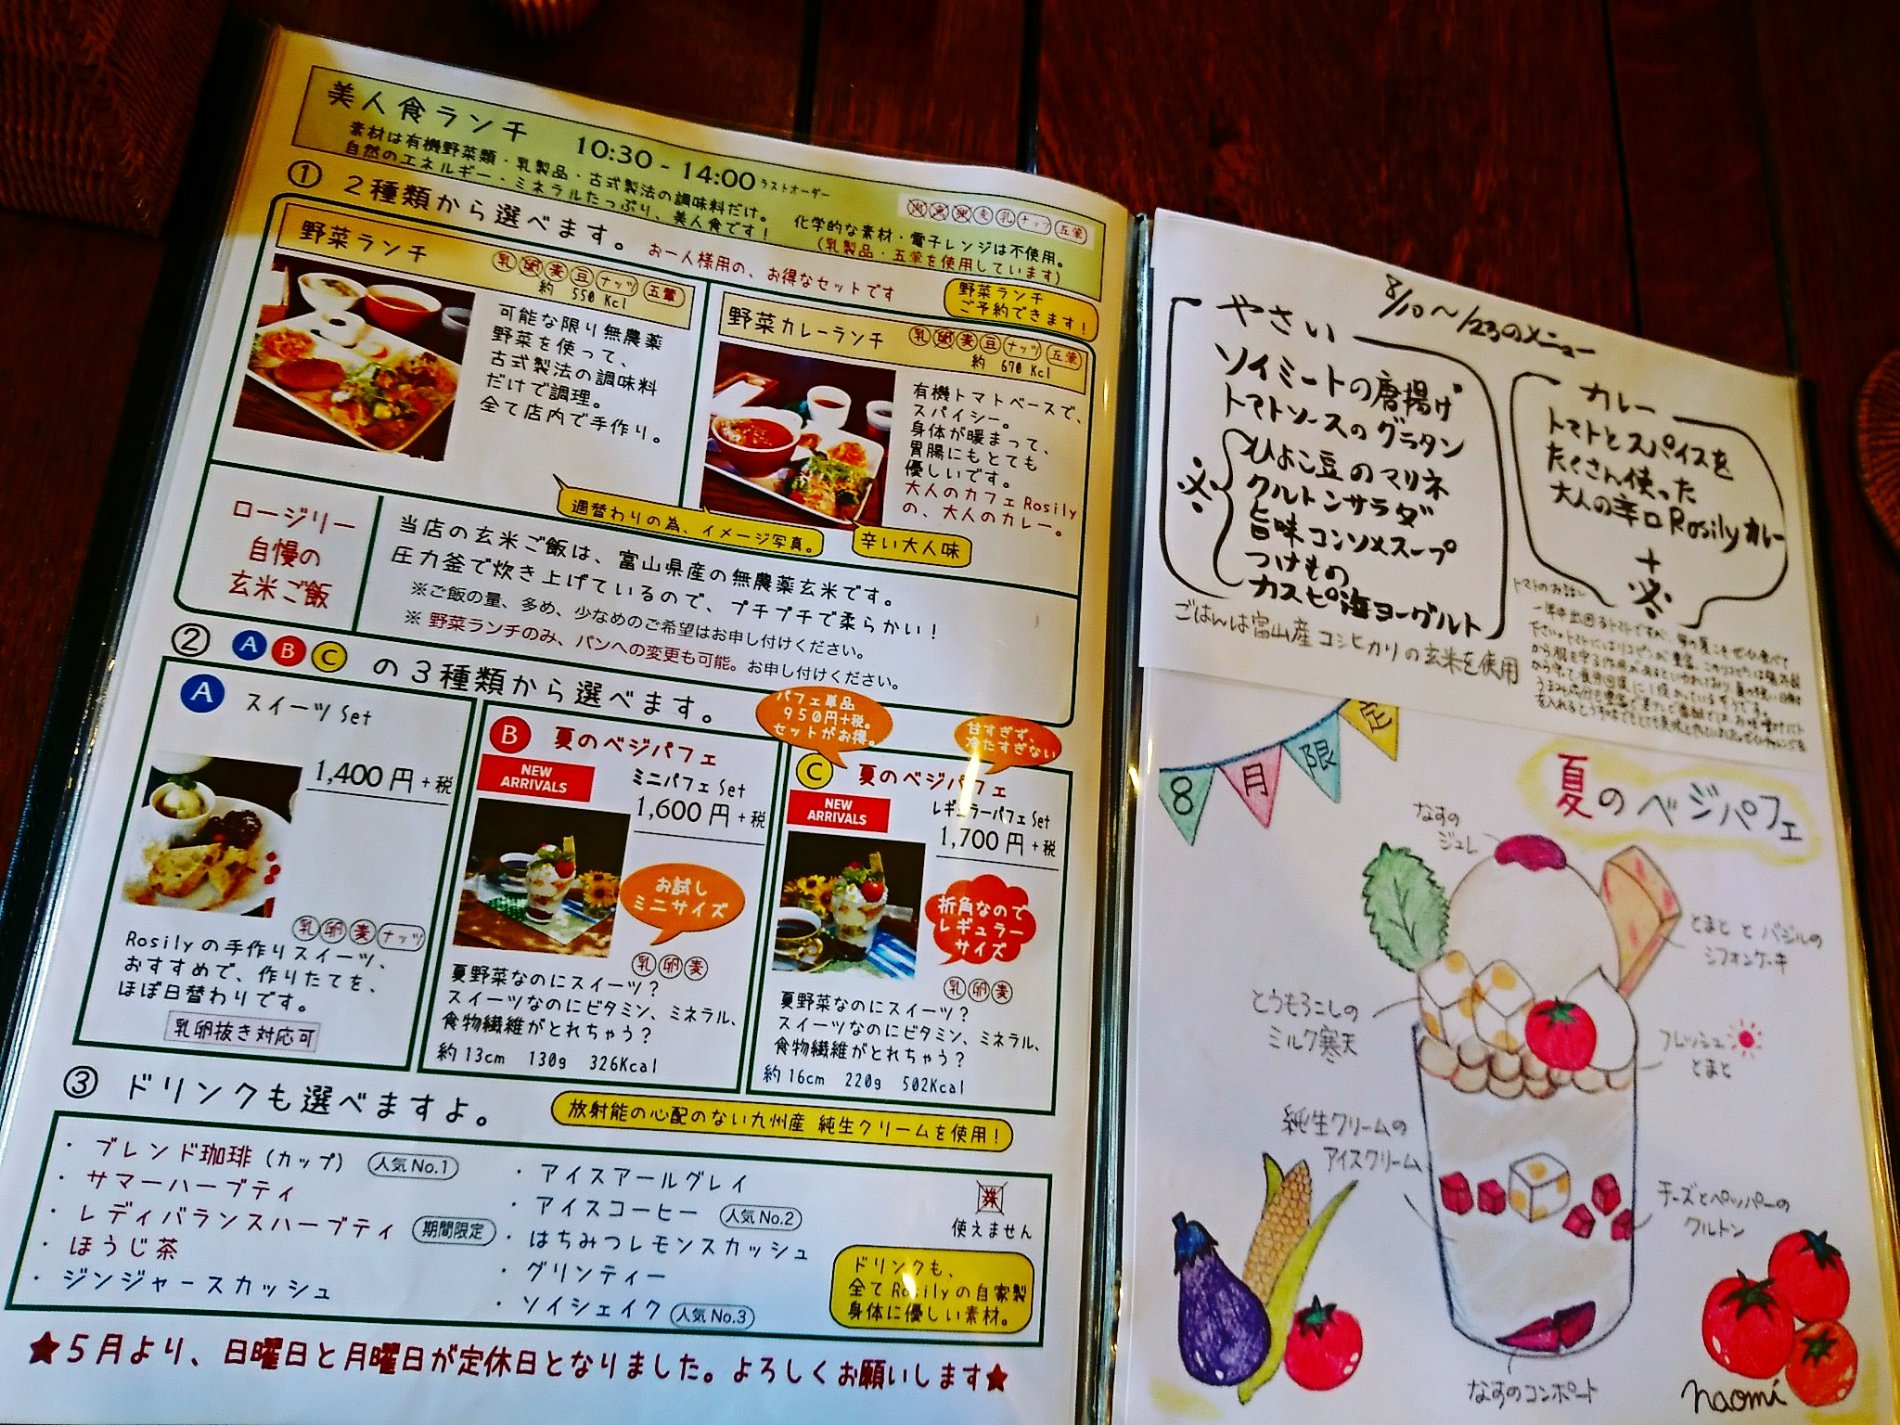 美人食ランチ 10:30 - 14:00 ラストオーダー
素材は有機野菜類・乳製品・古式製法の調味料だけ。
自然のエネルギー・ミネラルたっぷり、美人食です!
化学的な素材・電子レンジは不使用。
(乳製品・五葷を使用しています)
① 2種類から選べます。 お一人様用の、お得なセットです
野菜ランチ
ご予約できます!
野菜ランチ
乳 卵 麦 豆 ナッツ 五葷
約 550 Kcl
可能な限り無農薬
野菜を使って、
古式製法の調味料
だけで調理。
全て店内で手作り。
野菜カレーランチ
乳 卵 麦 豆 ナッツ 五葷
約 670 Kcl
有機トマトベースで、
スパイシー。
身体が暖まって、
胃腸にもとても
優しいです。
大人のカフェRosily
の、大人のカレー。
週替わりの為、イメージ写真。
辛い大人味
ロージリー
自慢の
玄米ご飯
当店の玄米ご飯は、富山県産の無農薬玄米です。
圧力釜で炊き上げているので、プチプチで柔らかい!
※ご飯の量、多め、少なめのご希望はお申し付けください。
※ 野菜ランチのみ、パンへの変更も可能。お申し付けください。
② A B C の3種類から選べます。
パフェ単品
950円+税。
セットがお得。
甘すぎず、
冷たすぎない
A スイーツ Set
1,400 円 +税
乳 卵 麦 ナッツ
Rosilyの手作りスイーツ、
おすすめで、作りたてを、
ほぼ日替わりです。
乳卵抜き対応可
B 夏のベジパフェ
NEW
ARRIVALS
ミニパフェ Set
1,600 円 +税
お試し
ミニサイズ
乳 卵 麦
夏野菜なのにスイーツ?
スイーツなのにビタミン、ミネラル、
食物繊維がとれちゃう?
約13cm 130g 326Kcal
C 夏のベジパフェ
NEW
ARRIVALS
レギュラーパフェ Set
1,700 円 +税
折角なので
レギュラー
サイズ
乳 卵 麦
夏野菜なのにスイーツ?
スイーツなのにビタミン、ミネラル、
食物繊維がとれちゃう?
約16cm 220g 502Kcal
③ ドリンクも選べますよ。
放射能の心配のない九州産 純生クリームを使用!
・ ブレンド珈琲(カップ) 人気No.1
・ サマーハーブティ
・ レディバランスハーブティ 期間限定
・ ほうじ茶
・ ジンジャースカッシュ
・ アイスアールグレイ
・ アイスコーヒー 人気No.2
・ はちみつレモンスカッシュ
・ グリンティー
・ ソイシェイク 人気No.3
使えません
ドリンクも、
全てRosilyの自家製
身体に優しい素材。
★5月より、日曜日と月曜日が定休日となりました。よろしくお願いします★
8/10〜/23のメニュー
やさい
ソイミートの唐揚げ
トマトソースのグラタン
※
ひよこ豆のマリネ
クルトンサラダ
旨味コンソメスープ
つけもの
カスピ海ヨーグルト
カレー
トマトとスパイスを
たくさん使った
大人の辛口Rosilyカレー
+
※
ごはんは富山産コシヒカリの玄米を使用
トマトのお話し
8月限定
夏のベジパフェ
なすの
ジュレ
とまととバジルの
シフォンケーキ
とうもろこしの
ミルク寒天
フレッシュ
とまと
純生クリームの
アイスクリーム
チーズとペッパーの
クルトン
なすのコンポート
naomi